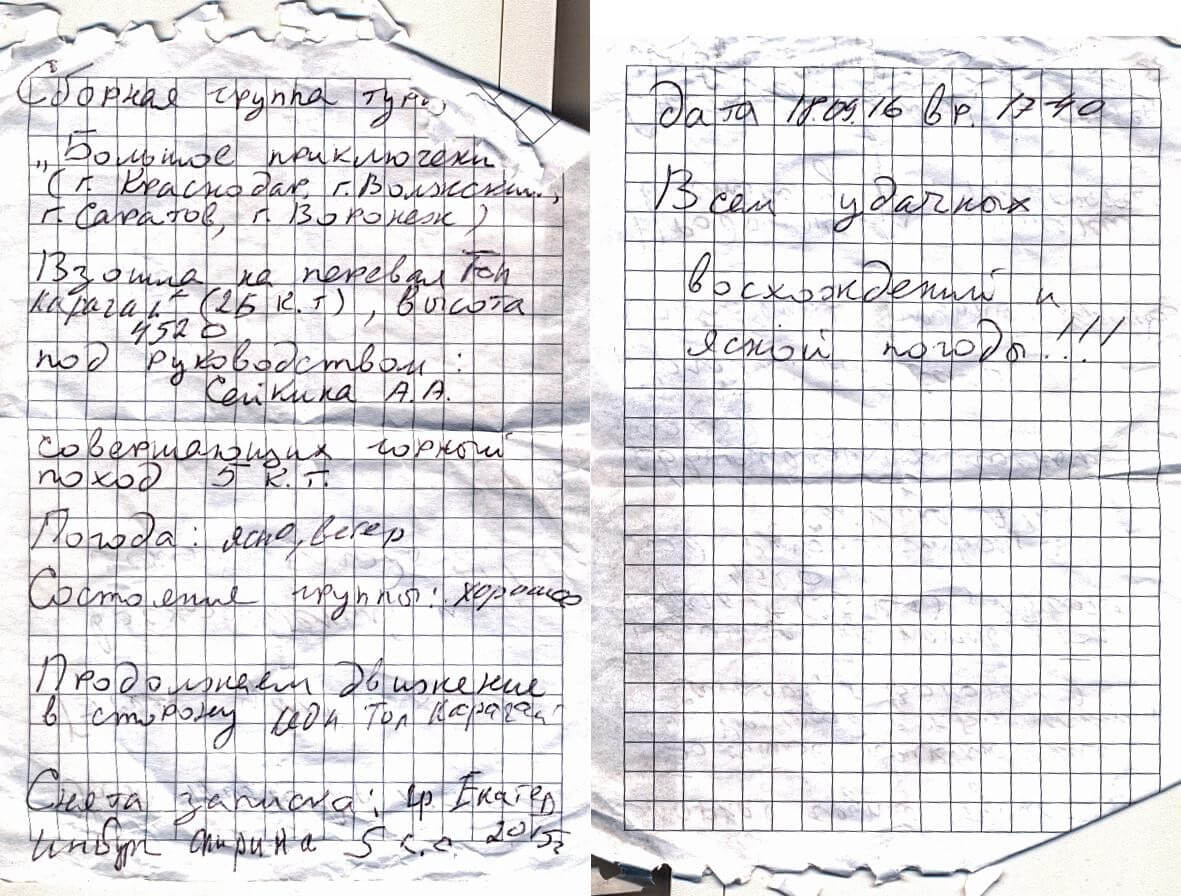 Сборная группа тури
„Большое приключени
(г. Краснодар, г. Волжский,
г. Саратов, г. Воронеж)
Взошла на перевал Топ
карагай" (2Б к.т), высота
4520
под руководством:
Сейкина А.А.
совершающих горный
поход 5 к.т.
Погода: ясно, ветер
Состояние группы: хорошее
Продолжаем движение
в сторону ледн Топ Карагай
Снята записка: гр Екатер
инбург 5 к.с. 2015г
дата 18.09.16 вр. 17-40
Всем удачных
восхождений и
ясной погоды!!!